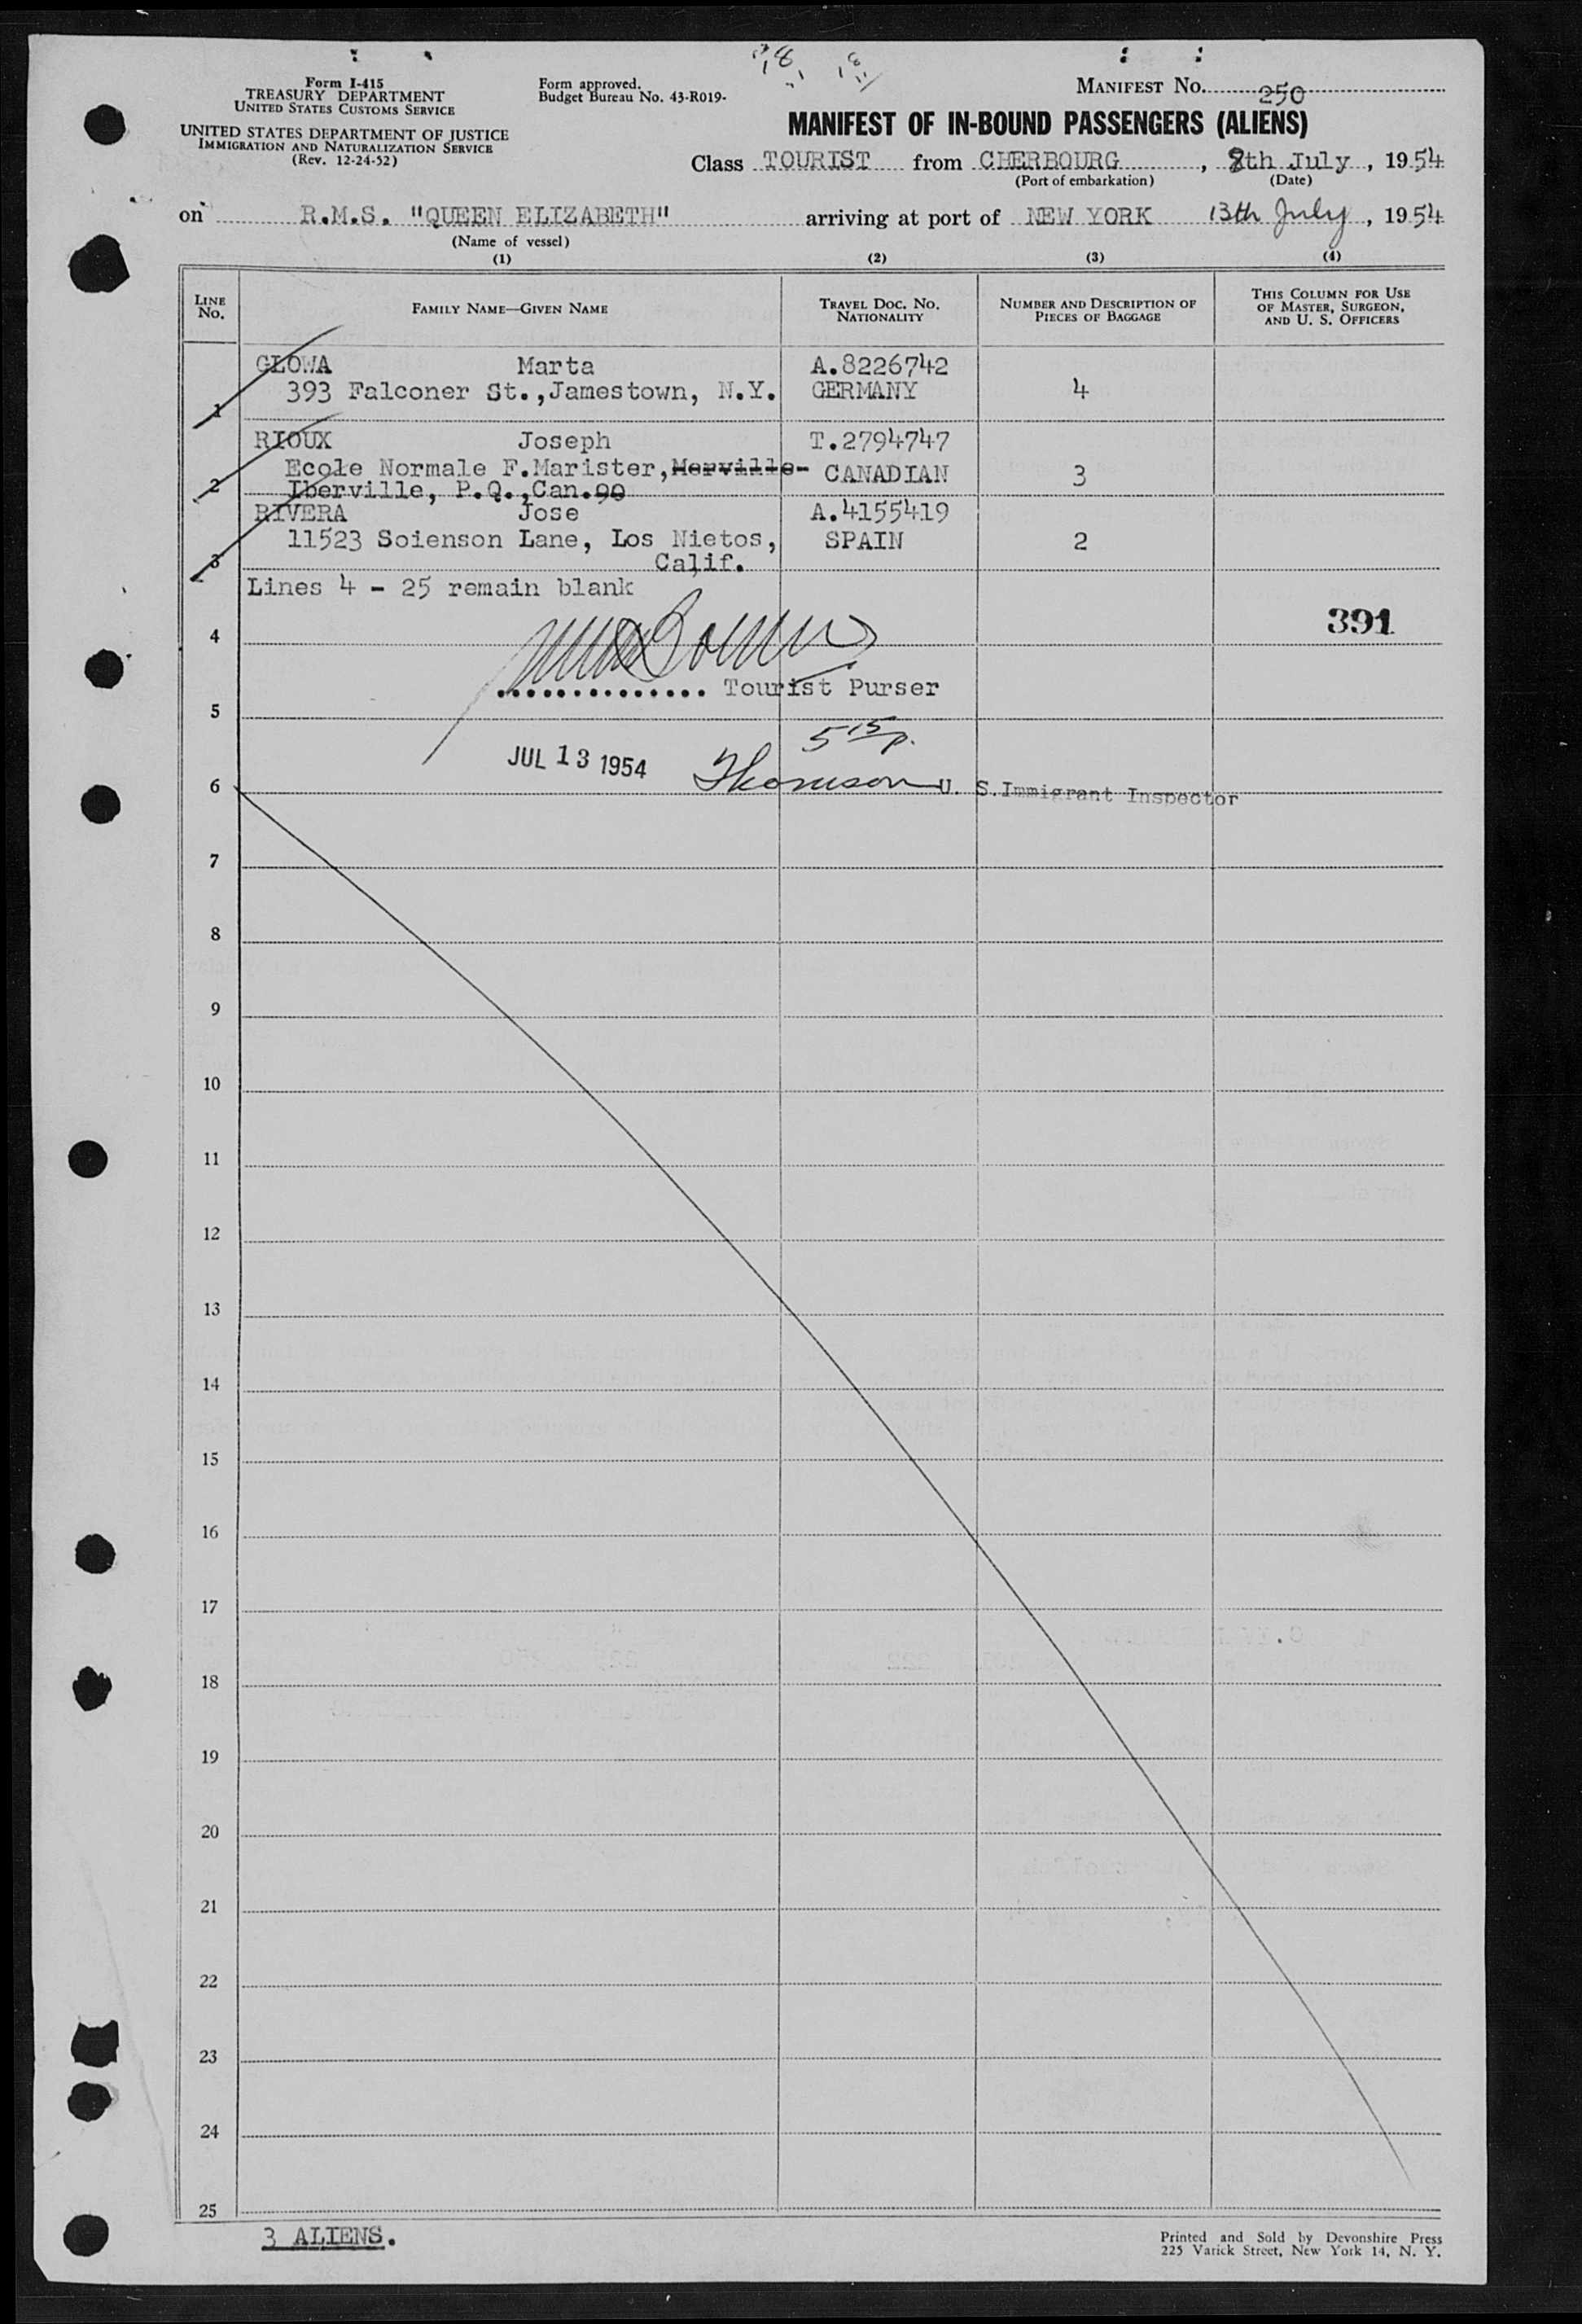 Form I-415
TREASURY DEPARTMENT
UNITED STATES CUSTOMS SERVICE
UNITED STATES DEPARTMENT OF JUSTICE
IMMIGRATION AND NATURALIZATION SERVICE
(Rev. 12-24-52)
Form approved.
Budget Bureau No. 43-R019-
MANIFEST No. 250
MANIFEST OF IN-BOUND PASSENGERS (ALIENS)
Class TOURIST from CHERBOURG, 8th July, 1954
(Port of embarkation) (Date)
on R.M.S. "QUEEN ELIZABETH" arriving at port of NEW YORK 13th July, 1954
(Name of vessel)
(1) (2) (3) (4)
LINE No. FAMILY NAME—GIVEN NAME TRAVEL DOC. No. NATIONALITY NUMBER AND DESCRIPTION OF PIECES OF BAGGAGE THIS COLUMN FOR USE OF MASTER, SURGEON, AND U. S. OFFICERS
GLOWA Marta A.8226742
393 Falconer St.,Jamestown, N.Y. GERMANY 4
1
RIOUX Joseph T.2794747
Ecole Normale F.Marister,Merville- CANADIAN 3
2 Iberville, P.Q.,Can.90
RIVERA Jose A.4155419
11523 Soienson Lane, Los Nietos, SPAIN 2
3 Calif.
Lines 4 - 25 remain blank
391
4
.............. Tourist Purser
5
5 15 p.
JUL 13 1954 Thomson U. S.Immigrant Inspector
6
7
8
9
10
11
12
13
14
15
16
17
18
19
20
21
22
23
24
25
3 ALIENS.
Printed and Sold by Devonshire Press
225 Varick Street, New York 14, N. Y.